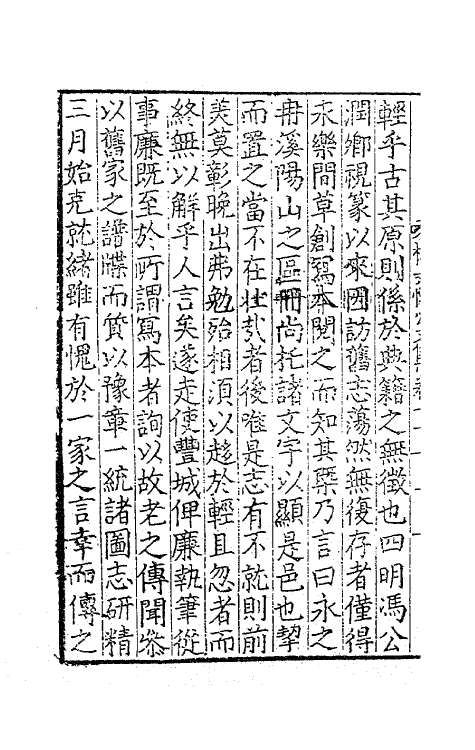 輕乎古其原則係於典籍之無徵也四明馮公
潤鄉視篆以來因訪舊志蕩然無復存者僅得
永樂間草創寫本閱之而知其槩乃言曰永之
冉溪陽山之區冊尚托諸文字以顯是邑也挈
而置之當不在
者後唯是志有不就則前
羙莫彰晚出弗勉殆相湏以趍於輕且忽者而
終無以觧乎人言矣遂走使豐城俾廉執筆従
事廉既至於所謂寫本者詢以故老之傳聞叅
以舊家之譜牒而質以豫章一統諸圖志研精
三月始克就緒雖有愧於一家之言幸而傳之